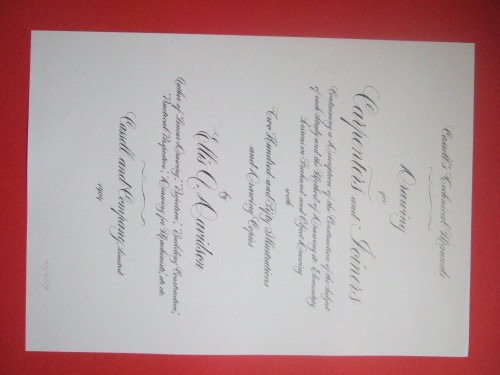 Cassell's Technical Manuals
Drawing
for
Carpenters and Joiners
Containing a Description of the Construction of the Subject
of each Study and the Method of Drawing it: Elementary
Lessons in Freehand and Object Drawing
with
Two Hundred and Fifty Illustrations
and Drawing Copies
by
Ellis A. Davidson
Author of "Linear Drawing", "Projection", "Building Construction",
"Practical Perspective", "Drawing for Machinists", etc. etc.
Cassell and Company, limited
1904